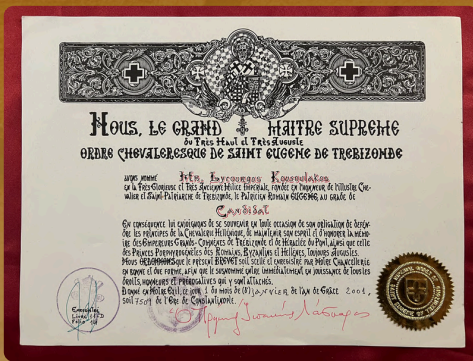 NOUS, LE GRAND MAITRE SUPREME
du Très Haut et Très Auguste
ORDRE CHEVALERESQUE DE SAINT EUGENE DE TREBIZONDE
avons nommé Mr. Lycourgos
en la Très Glorieuse et Très Ancienne Milice Impériale, fondée en l'honneur de l'illustre Che-
valier et Saint-Patriarche de Trebizonde, le Patricien Romain EUGENE, au grade de
Candidat
En conséquence lui enjoignons de se souvenir en toute occasion de son obligation de défen-
dre les principes de la Chevalerie Hellénique, de maintenir son esprit et d'honorer la mémoi-
re des Empereurs Grands-Comnènes de Trebizonde et de Héraclée du Pont, ainsi que celle
des Princes Porphyrogénètes des Romains, Byzantins et Hellènes, toujours Augustes.
Nous ORDONNONS que le présent BREVET soit scellé et enregistré par Notre Chancellerie
en bonne et due forme, afin que le susnommé entre immédiatement en jouissance de tous les
droits, honneurs et prérogatives qui y sont attachés.
Donné en Notre Exil, ce jour 1 du mois de Janvier de l'an de Grâce 2001,
soit 7509 de l'Ere de Constantinople.
Enregistré
Livre
Folio